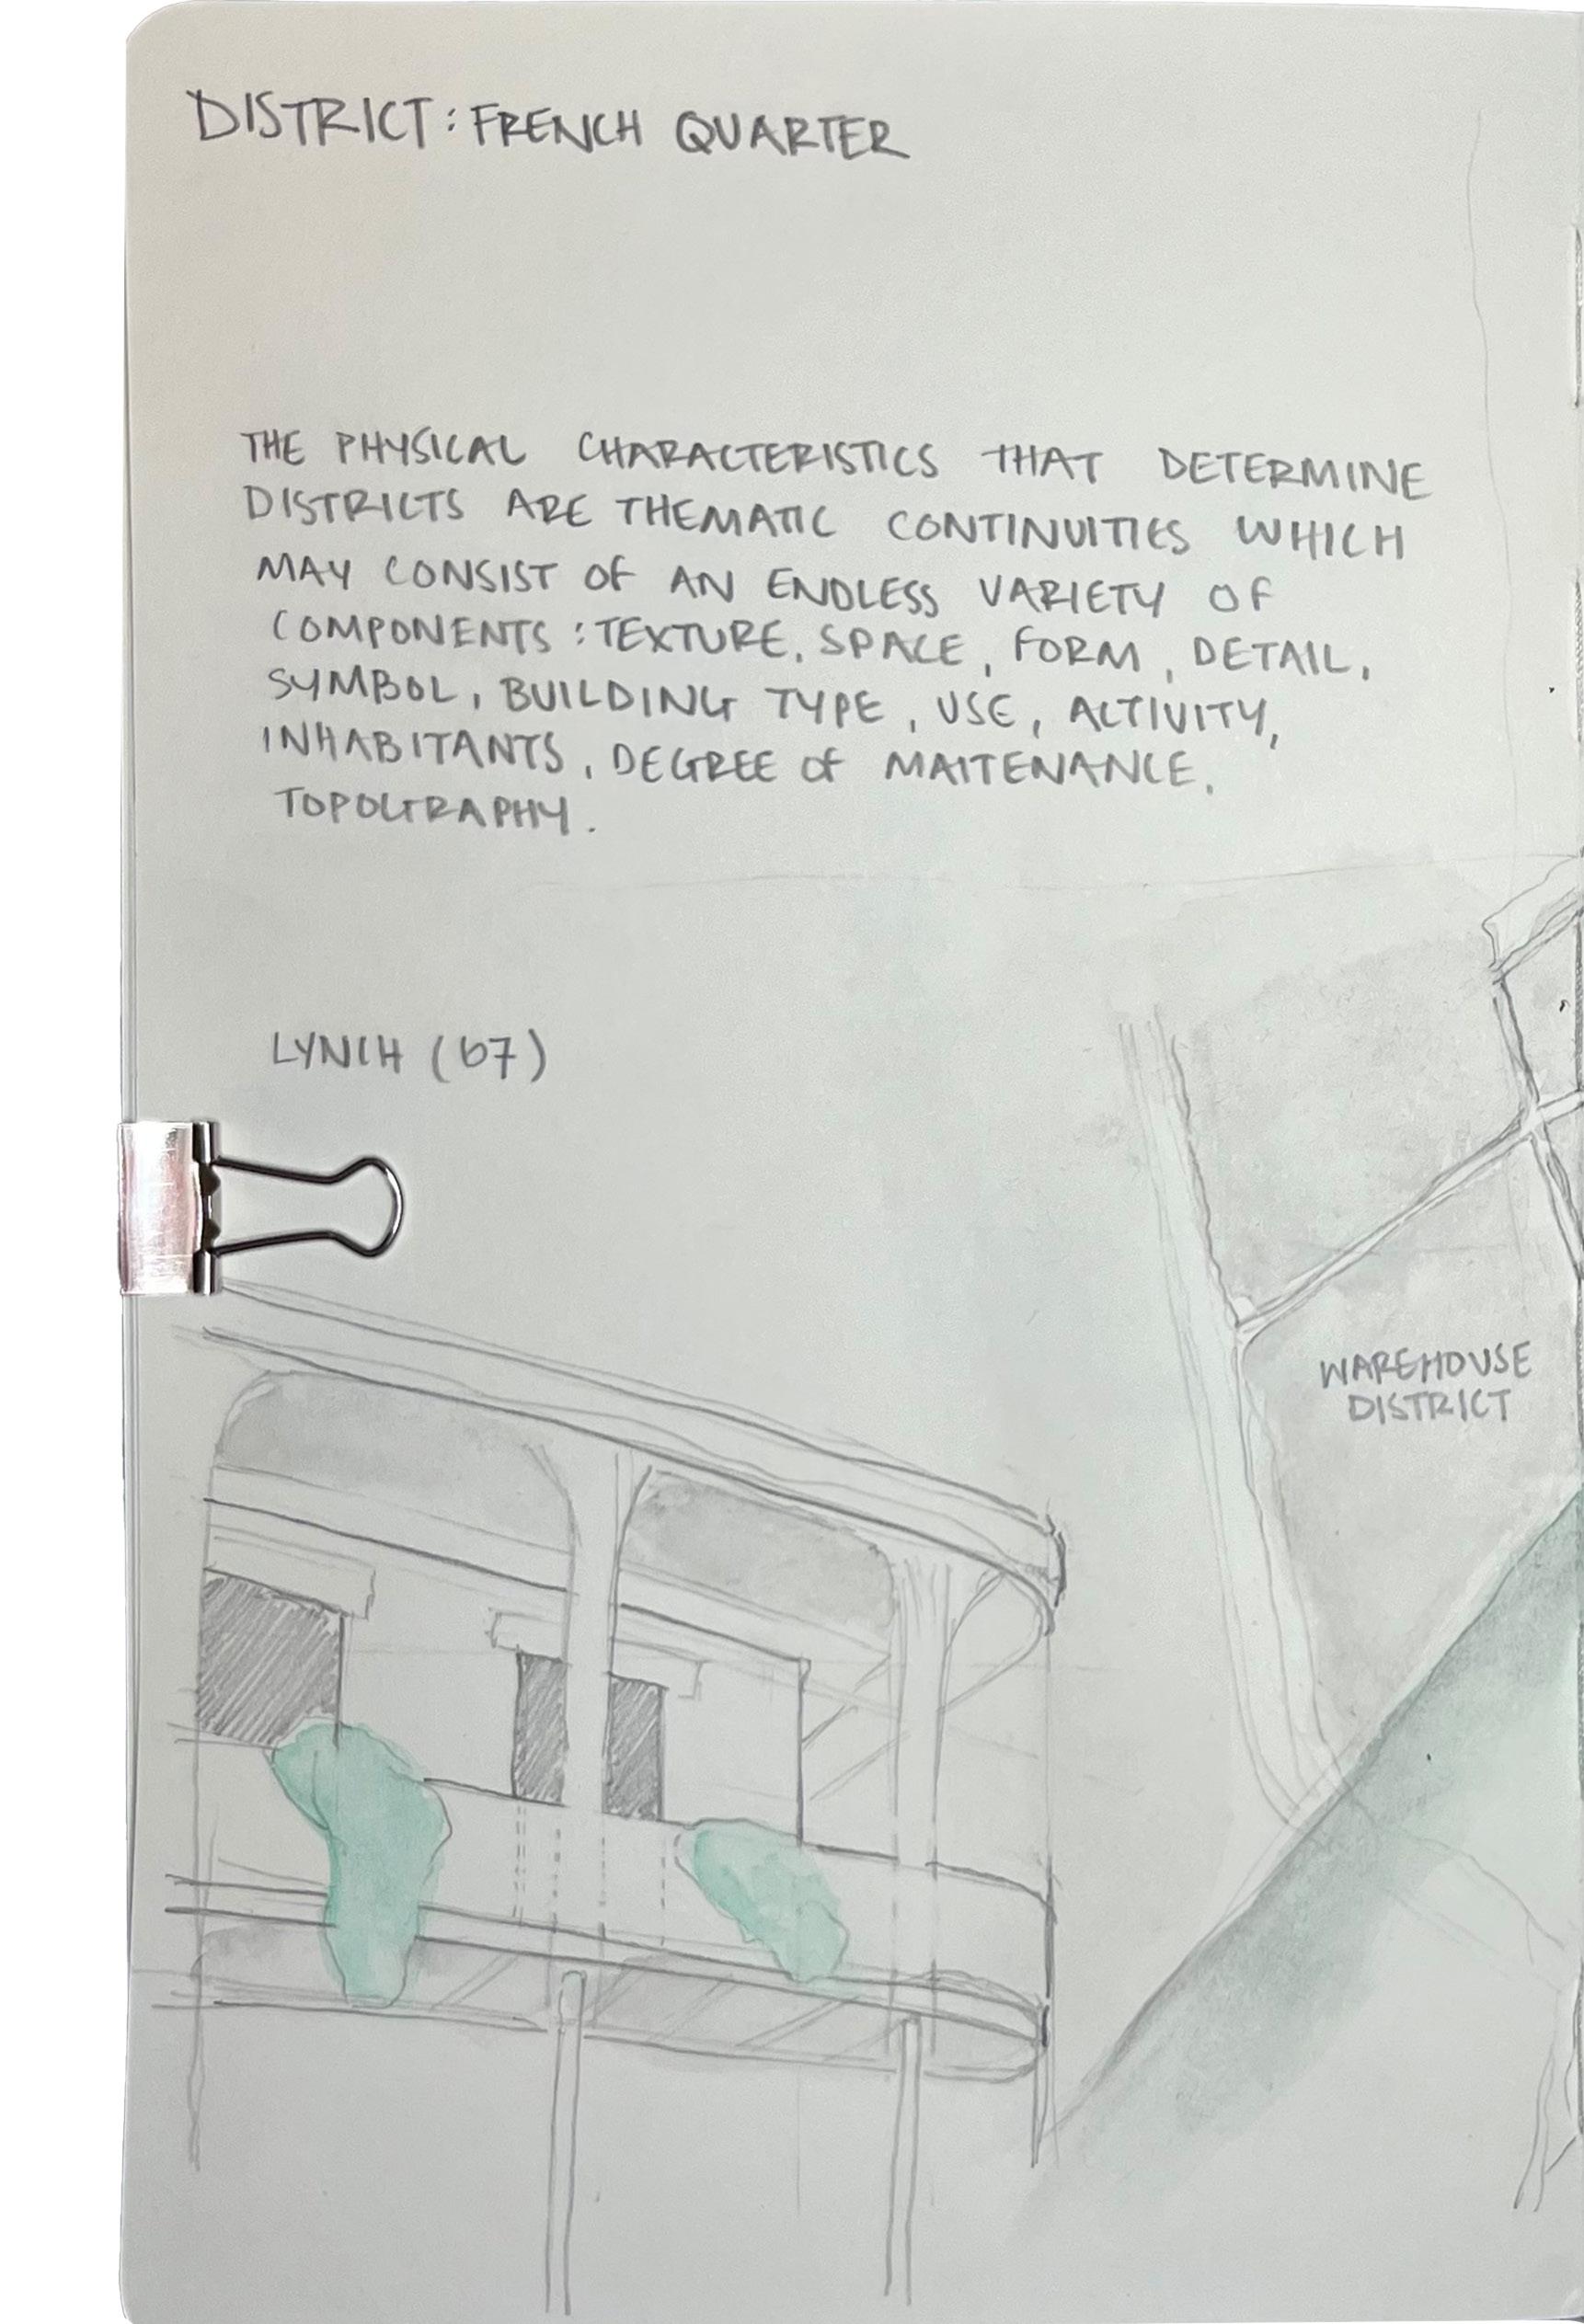 DISTRICT: FRENCH QUARTER
THE PHYSICAL CHARACTERISTICS THAT DETERMINE
DISTRICTS ARE THEMATIC CONTINUITIES WHICH
MAY CONSIST OF AN ENDLESS VARIETY OF
COMPONENTS: TEXTURE, SPACE, FORM, DETAIL,
SYMBOL, BUILDING TYPE, USE, ACTIVITY,
INHABITANTS, DEGREE OF MAITENANCE,
TOPOGRAPHY.
LYNCH (67)
WAREHOUSE
DISTRICT